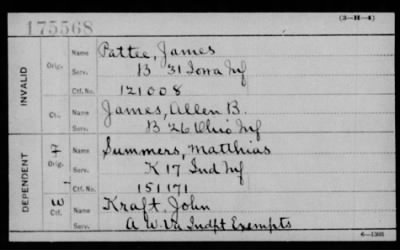 175568
(3-H-4)
INVALID
Orig.
Name Pattee, James
Serv. B 31 Iowa Inf
Ctf. No. 121008
Ct.
Name James, Allen B.
Serv. B 26 Ohio Inf
DEPENDENT
F
Orig.
Name Summers, Matthias
Serv. K 17 Ind Inf
Ctf. No. 151171
W
Ctf.
Name Kraft, John
Serv. A W. Va Indpt Exempts
6-1388